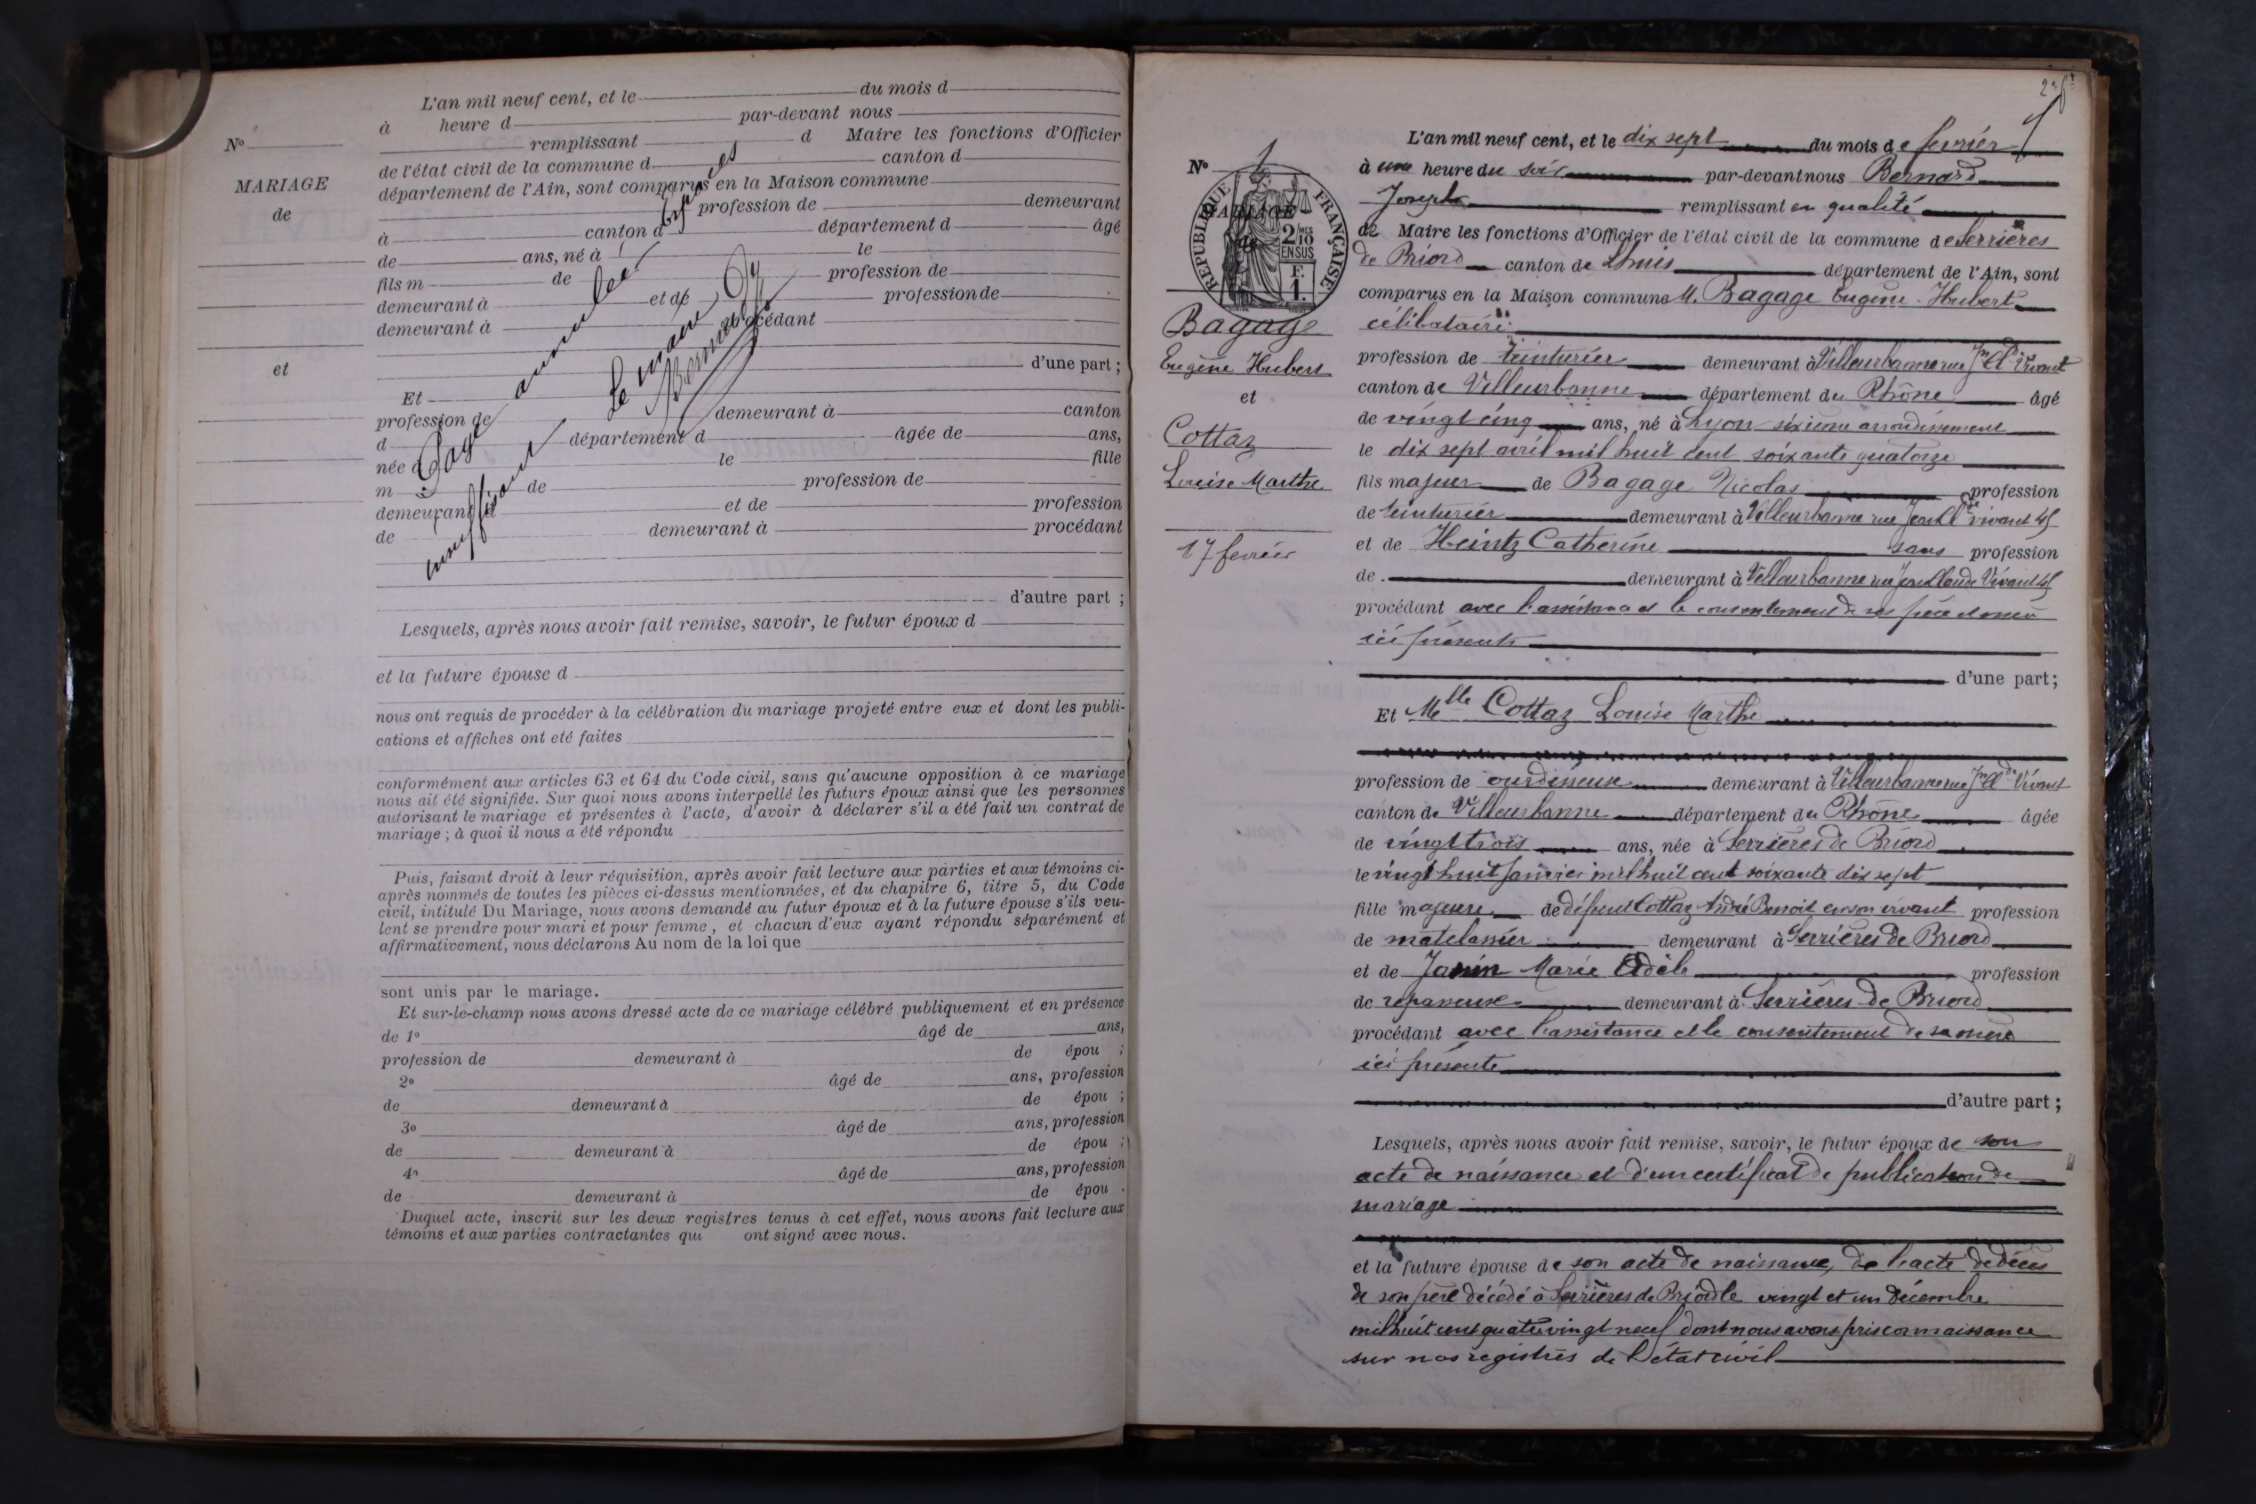 L'an mil neuf cent, et le du mois d
à heure d par-devant nous
remplissant d Maire les fonctions d'Officier
de l'état civil de la commune d canton d
département de l'Ain, sont comparus en la Maison commune
profession de demeurant
à canton d département d âgé
de ans, né à le
fils m de profession de
demeurant à et de profession de
demeurant à procédant
d'une part ;
Et
profession de demeurant à canton
d département d âgée de ans,
née à le fille
m de profession de
demeurant à et de profession
de demeurant à procédant
d'autre part ;
Lesquels, après nous avoir fait remise, savoir, le futur époux d
et la future épouse d
nous ont requis de procéder à la célébration du mariage projeté entre eux et dont les publi-
cations et affiches ont eté faites
conformément aux articles 63 et 64 du Code civil, sans qu'aucune opposition à ce mariage
nous ait été signifiée. Sur quoi nous avons interpellé les futurs époux ainsi que les personnes
autorisant le mariage et présentes à l'acte, d'avoir à déclarer s'il a été fait un contrat de
mariage ; à quoi il nous a été répondu
Puis, faisant droit à leur réquisition, après avoir fait lecture aux parties et aux témoins ci-
après nommés de toutes les pièces ci-dessus mentionnées, et du chapitre 6, titre 5, du Code
civil, intitulé Du Mariage, nous avons demandé au futur époux et à la future épouse s'ils veu-
lent se prendre pour mari et pour femme, et chacun d'eux ayant répondu séparément et
affirmativement, nous déclarons Au nom de la loi que
sont unis par le mariage.
Et sur-le-champ nous avons dressé acte de ce mariage célébré publiquement et en présence
de 1º âgé de ans,
profession de demeurant à de épou ;
2º âgé de ans, profession
de demeurant à de épou ;
3º âgé de ans, profession
de demeurant à de épou ;
4º âgé de ans, profession
de demeurant à de épou .
Duquel acte, inscrit sur les deux registres tenus à cet effet, nous avons fait lecture aux
témoins et aux parties contractantes qui ont signé avec nous.
Nº
MARIAGE
de
et
Page annulée
Le maire
Bernard
Nº 1
MARIAGE
de
RÉPUBLIQUE FRANÇAISE
2/10
EN SUS
F.
1.
Bagage
Eugène Hubert
et
Cottaz
Louise Marthe
17 fevrier
L'an mil neuf cent, et le dix sept du mois de fevrier
à une heure du soir par-devant nous Bernard
Joseph remplissant en qualité
de Maire les fonctions d'Officier de l'état civil de la commune de Serrières
de Briord canton de Lhuis département de l'Ain, sont
comparus en la Maison commune M. Bagage Eugène Hubert
célibataire
profession de teinturier demeurant à Villeurbanne rue Jn Cl de Vivant
canton de Villeurbanne département du Rhône âgé
de vingt cinq ans, né à Lyon sixième arrondissement
le dix sept avril mil huit cent soixante quatorze
fils majeur de Bagage Nicolas profession
de teinturier demeurant à Villeurbanne rue Jean Cl de vivant 45
et de Heintz Catherine sans profession
de demeurant à Villeurbanne rue Jean Claude Vivant 45
procédant avec l'assistance et le consentement de ses père et mère
ici présents
d'une part;
Et Melle Cottaz Louise Marthe
profession de ourdisseuse demeurant à Villeurbanne rue Jn Cl de Vivant
canton de Villeurbanne département du Rhône âgée
de vingt trois ans, née à Serrières de Briord
le vingt huit janvier mil huit cent soixante dix sept
fille majeure de défunt Cottaz André Benoit en son vivant profession
de matelassier demeurant à Serrières de Briord
et de Janin Marie Adèle profession
de repasseuse demeurant à Serrières de Briord
procédant avec l'assistance et le consentement de sa mère
ici présente
d'autre part ;
Lesquels, après nous avoir fait remise, savoir, le futur époux de son
acte de naissance et d'un certificat de publication de
mariage
et la future épouse de son acte de naissance, de l'acte de décès
de son père décédé à Serrières de Briord le vingt et un décembre
mil huit cent quatre vingt neuf dont nous avons pris connaissance
sur nos registres de l'état civil